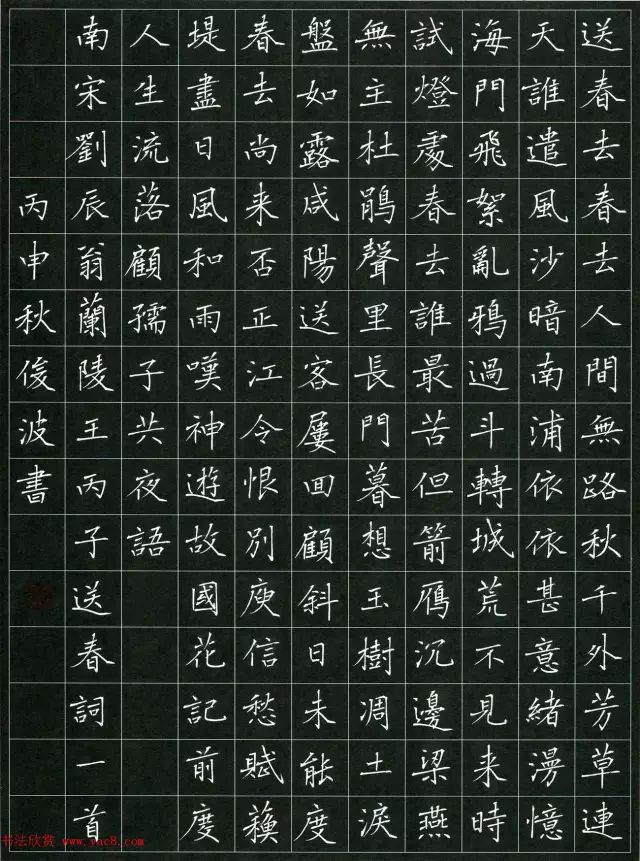 送春去春去人間無路秋千外芳草連
天誰遣風沙暗南浦依依甚意緒漫憶
海門飛絮亂鴉過斗轉城荒不見来時
試燈處春去誰最苦但箭鴈沉邊梁燕
無主杜鵑聲里長門暮想玉樹凋土淚
盤如露咸陽送客屢囬顧斜日未能度
春去尚来否正江令恨別庾信愁賦蘇
堤盡日風和雨嘆神遊故國花記前度
人生流落顧孺子共夜語
南宋劉辰翁蘭陵王丙子送春詞一首
丙申秋俊波書
书法欣赏 www.yac8.com